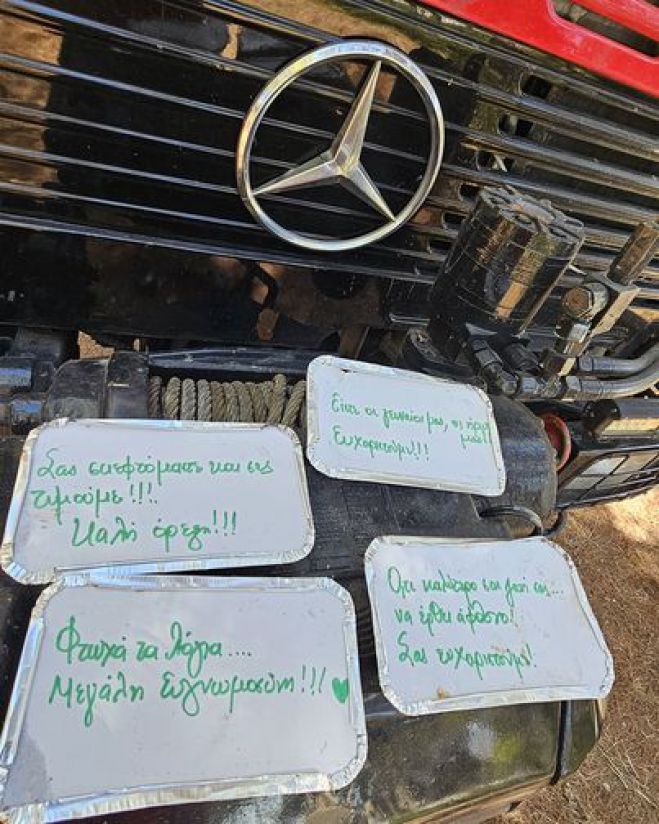 Είστε οι γενναίοι μας, οι ήρωές
μας!
Ευχαριστούμε!!!
Σας σκεφτόμαστε και σας
τιμούμε!!!.
Καλή όρεξη!!!
Ότι καλύτερο στη ζωή σας...
να έρθει άφθονο!
Σας ευχαριστούμε!
Φτωχά τα λόγια....
Μεγάλη Ευγνωμοσύνη!!!